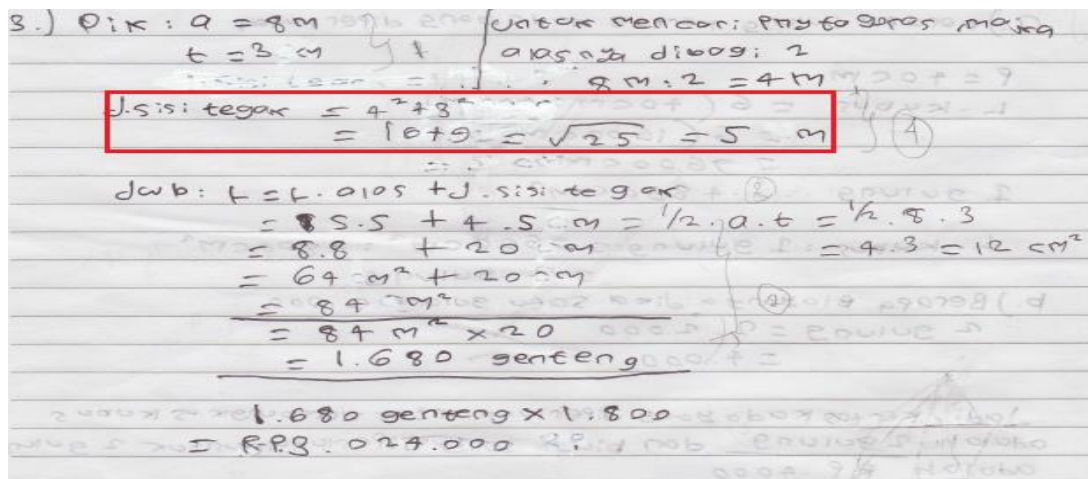 3.) Dik : a = 8 m
t = 3 m
untuk mencari phytagoras maka
alasnya dibagi 2
8 m : 2 = 4 m
J.sisi tegak = 4² + 3²
= 16+9 = √25 = 5 m
Jwb : L = L. alas + J. sisi tegak
= s.s + 4 .5 m = 1/2 . a . t = 1/2 . 8 . 3
= 8.8 + 20 m = 4.3 = 12 cm²
= 64 m² + 20 m
= 84 m²
= 84 m² × 20
= 1.680 genteng
1.680 genteng × 1.800
= R.P.3.024.000